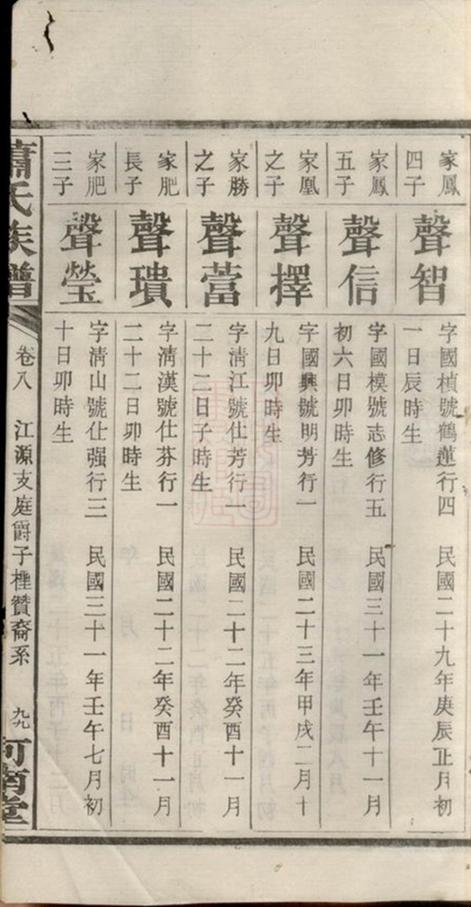 家鳳
四子
聲智
字國楨號鶴蓮行四 民國二十九年庚辰正月初
一日辰時生
家鳳
五子
聲信
字國模號志修行五 民國三十一年壬午十一月
初六日卯時生
家凰
之子
聲擇
字國興號明芳行一 民國二十三年甲戌二月十
九日卯時生
家勝
之子
聲蓄
字淸江號仕芳行一 民國二十二年癸酉十一月
二十二日子時生
家肥
長子
聲璝
字淸漢號仕芬行一 民國二十二年癸酉十一月
二十二日卯時生
家肥
三子
聲瑩
字淸山號仕强行三 民國三十一年壬午七月初
十日卯時生
蕭氏族譜
卷八 江源支庭爵子 贊裔系 九九
河南堂